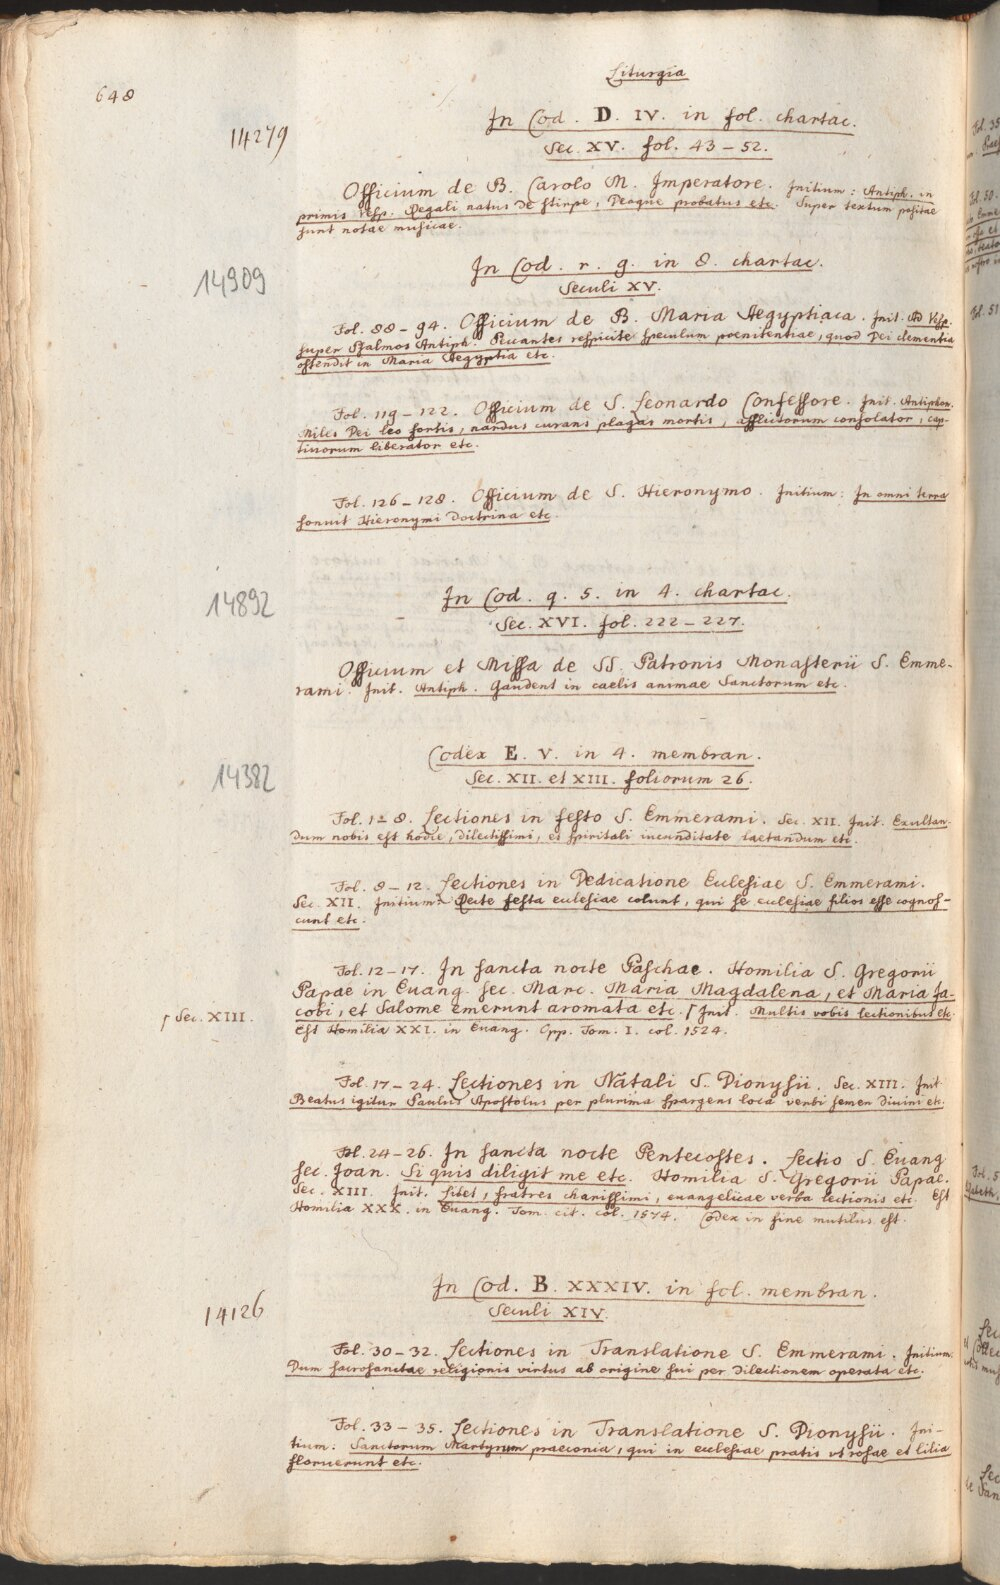 Liturgia
648
14279
In Cod. D. IV. in fol. chartac.
Sec. XV. fol. 43 – 52.
Officium de B. Carolo M. Imperatore. Initium: Antiph. in
primis Vesp. Regali natus de stirpe, Deoque probatus etc. Super textum positae
sunt notae musicae.
14909
In Cod. r. g. in 8. chartac.
Seculi XV.
Fol. 88 – 94. Officium de B. Maria Aegyptiaca. Init. Ad Vesp.
super Psalmos Antiph. Peccantes respicite speculum poenitentiae, quod Dei clementia
ostendit in Maria Aegyptia etc.
Fol. 119 – 122. Officium de S. Leonardo Confessore. Init. Antiphon.
Miles Dei leo fortis, nardus curans plagas mortis, afflictorum consolator, cap-
tivorum liberator etc.
Fol. 126 – 128. Officium de S. Hieronymo. Initium: In omni terra
sonuit Hieronymi doctrina etc.
14892
In Cod. q. 5. in 4. chartac.
Sec. XVI. fol. 222 – 227.
Officium et Missa de SS. Patronis Monasterii S. Emme-
rami. Init. Antiph. Gaudent in caelis animae Sanctorum etc.
14382
Codex E. V. in 4. membran.
Sec. XII. et XIII. foliorum 26.
Fol. 1 – 8. Lectiones in festo S. Emmerami. Sec. XII. Init. Exultan-
dum nobis est hodie, dilectissimi, et spiritali iucunditate laetandum etc.
Fol. 8 – 12. Lectiones in Dedicatione Ecclesiae S. Emmerami.
Sec. XII. Initium: Recte festa ecclesiae colunt, qui se ecclesiae filios esse cognos-
cunt etc.
Fol. 12 – 17. In sancta nocte Paschae. Homilia S. Gregorii
Papae in Euang. sec. Marc. Maria Magdalena, et Maria Ja-
cobi, et Salome emerunt aromata etc. ⌈ Init. Multis vobis lectionibus etc.
⌈ Sec. XIII.
Est Homilia XXI. in Euang. Opp. Tom. I. col. 1524.
Fol. 17 – 24. Lectiones in Natali S. Dionysii. Sec. XIII. Init.
Beatus igitur Paulus Apostolus per plurima spargens loca verbi semen diuini etc.
Fol. 24 – 26. In sancta nocte Pentecostes. Lectio S. Euang.
sec. Joan. Si quis diligit me etc. Homilia S. Gregorii Papae.
Sec. XIII. Init. Libet, fratres charissimi, euangelicae verba lectionis etc. Est
Homilia XXX. in Euang. Tom. cit. col. 1574. Codex in fine mutilus est.
14126
In Cod. B. XXXIV. in fol. membran.
Seculi XIV.
Fol. 30 – 32. Lectiones in Translatione S. Emmerami. Initium:
Dum sacrosanctae religionis virtus ab origine sui per dilectionem operata etc.
Fol. 33 – 35. Lectiones in Translatione S. Dionysii. Ini-
tium: Sanctorum Martyrum praeconia, qui in ecclesiae pratis ut rosae et lilia
floruerunt etc.